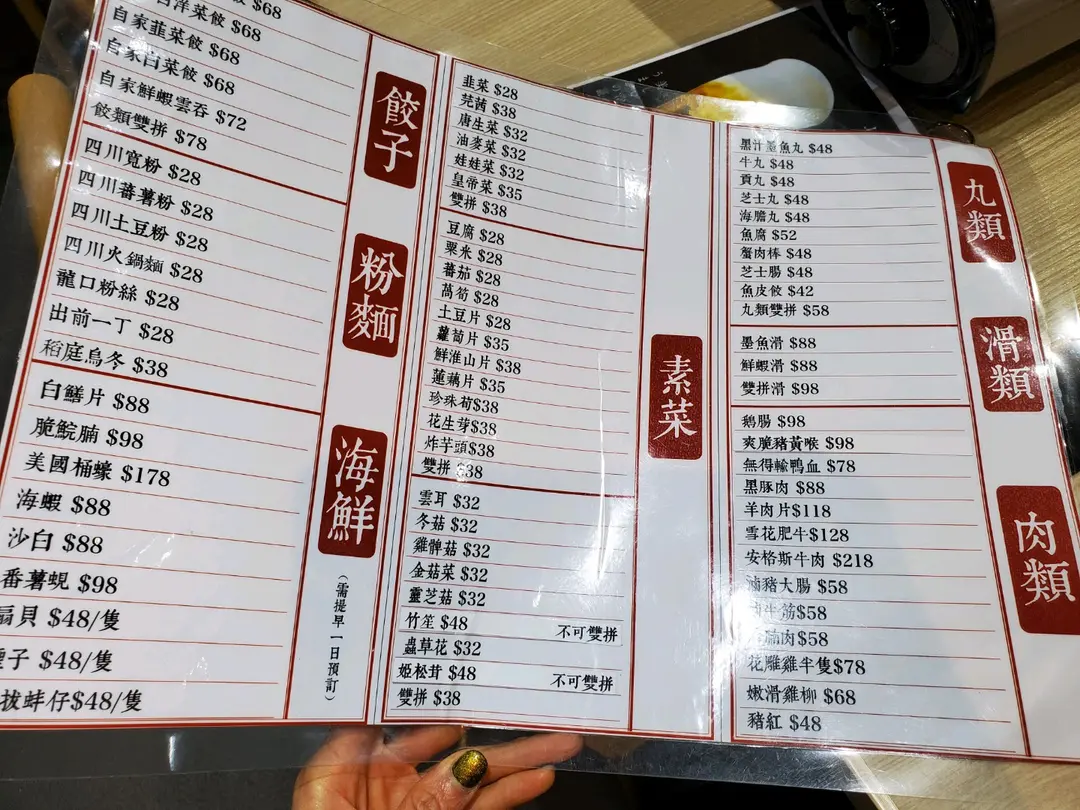 $68
西洋菜餃 $68
自家韮菜餃 $68
自家白菜餃 $68
自家鮮蝦雲吞 $72
餃類雙拼 $78
餃子
四川寬粉 $28
四川蕃薯粉 $28
四川土豆粉 $28
四川火鍋麵 $28
龍口粉絲 $28
出前一丁 $28
稻庭烏冬 $38
粉麵
白鱔片 $88
脆鯇腩 $98
美國桶蠔 $178
海蝦 $88
沙白 $88
番薯蜆 $98
扇貝 $48/隻
子 $48/隻
拔蚌仔$48/隻
海鮮
(需提早一日預訂)
韮菜 $28
芫茜 $38
唐生菜 $32
油麥菜 $32
娃娃菜 $32
皇帝菜 $35
雙拼 $38
豆腐 $28
粟米 $28
蕃茄 $28
萵筍 $28
土豆片 $28
蘿蔔片 $35
鮮淮山片 $38
蓮藕片 $35
珍珠荀$38
花生芽$38
炸芋頭$38
雙拼 $38
雲耳 $32
冬菇 $32
雞髀菇 $32
金菇菜 $32
靈芝菇 $32
竹笙 $48 不可雙拼
蟲草花 $32
姬松茸 $48 不可雙拼
雙拼 $38
素菜
黑汁墨魚丸 $48
牛丸 $48
貢丸 $48
芝士丸 $48
海膽丸 $48
魚腐 $52
蟹肉棒 $48
芝士腸 $48
魚皮餃 $42
丸類雙拼 $58
丸類
墨魚滑 $88
鮮蝦滑 $88
雙拼滑 $98
滑類
鵝腸 $98
爽脆豬黃喉 $98
無得輸鴨血 $78
黑豚肉 $88
羊肉片$118
雪花肥牛$128
安格斯牛肉 $218
滷豬大腸 $58
牛筋$58
腩肉$58
花雕雞半隻$78
嫩滑雞柳 $68
豬紅 $48
肉類